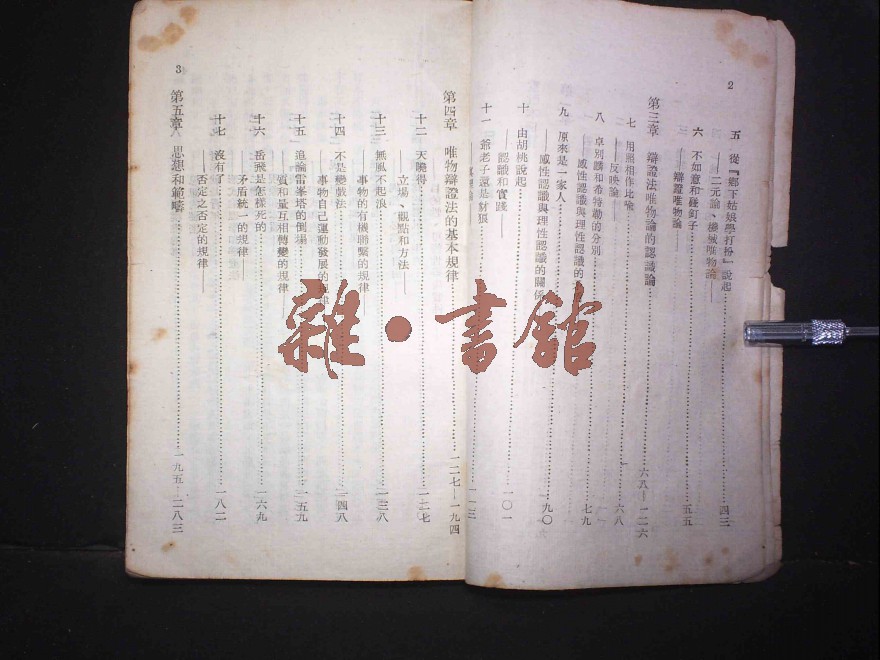 2
五　從『鄉下姑娘學打扮』說起……四三
——二元論、機械唯物論——
六　不如意和碰釘子……五五
——辯證唯物論——
第三章　辯證法唯物論的認識論……六八—一二六
七　用照相作比喻……六八
——反映論——
八　卓別麟和希特勒的分別……七九
——感性認識與理性認識的
九　原來是一家人……九〇
——感性認識與理性認識的關係
十　由胡桃說起……一〇一
——認識和實踐——
十一　爺老子還是豺狼……一一三
3
第四章　唯物辯證法的基本規律……一二七—一九四
十二　天曉得……一二七
——立場、觀點和方法——
十三　無風不起浪……一三八
——事物的有機聯繫的規律——
十四　不是變戲法……一四八
——事物自己運動發展的規律
十五　追論雷峯塔的倒塌……一五九
——質和量互相轉變的規律——
十六　岳飛是怎樣死的……一六九
——矛盾統一的規律——
十七　沒有了……一八二
——否定之否定的規律——
第五章　思想和範疇……一九五—二八三
雜·書館